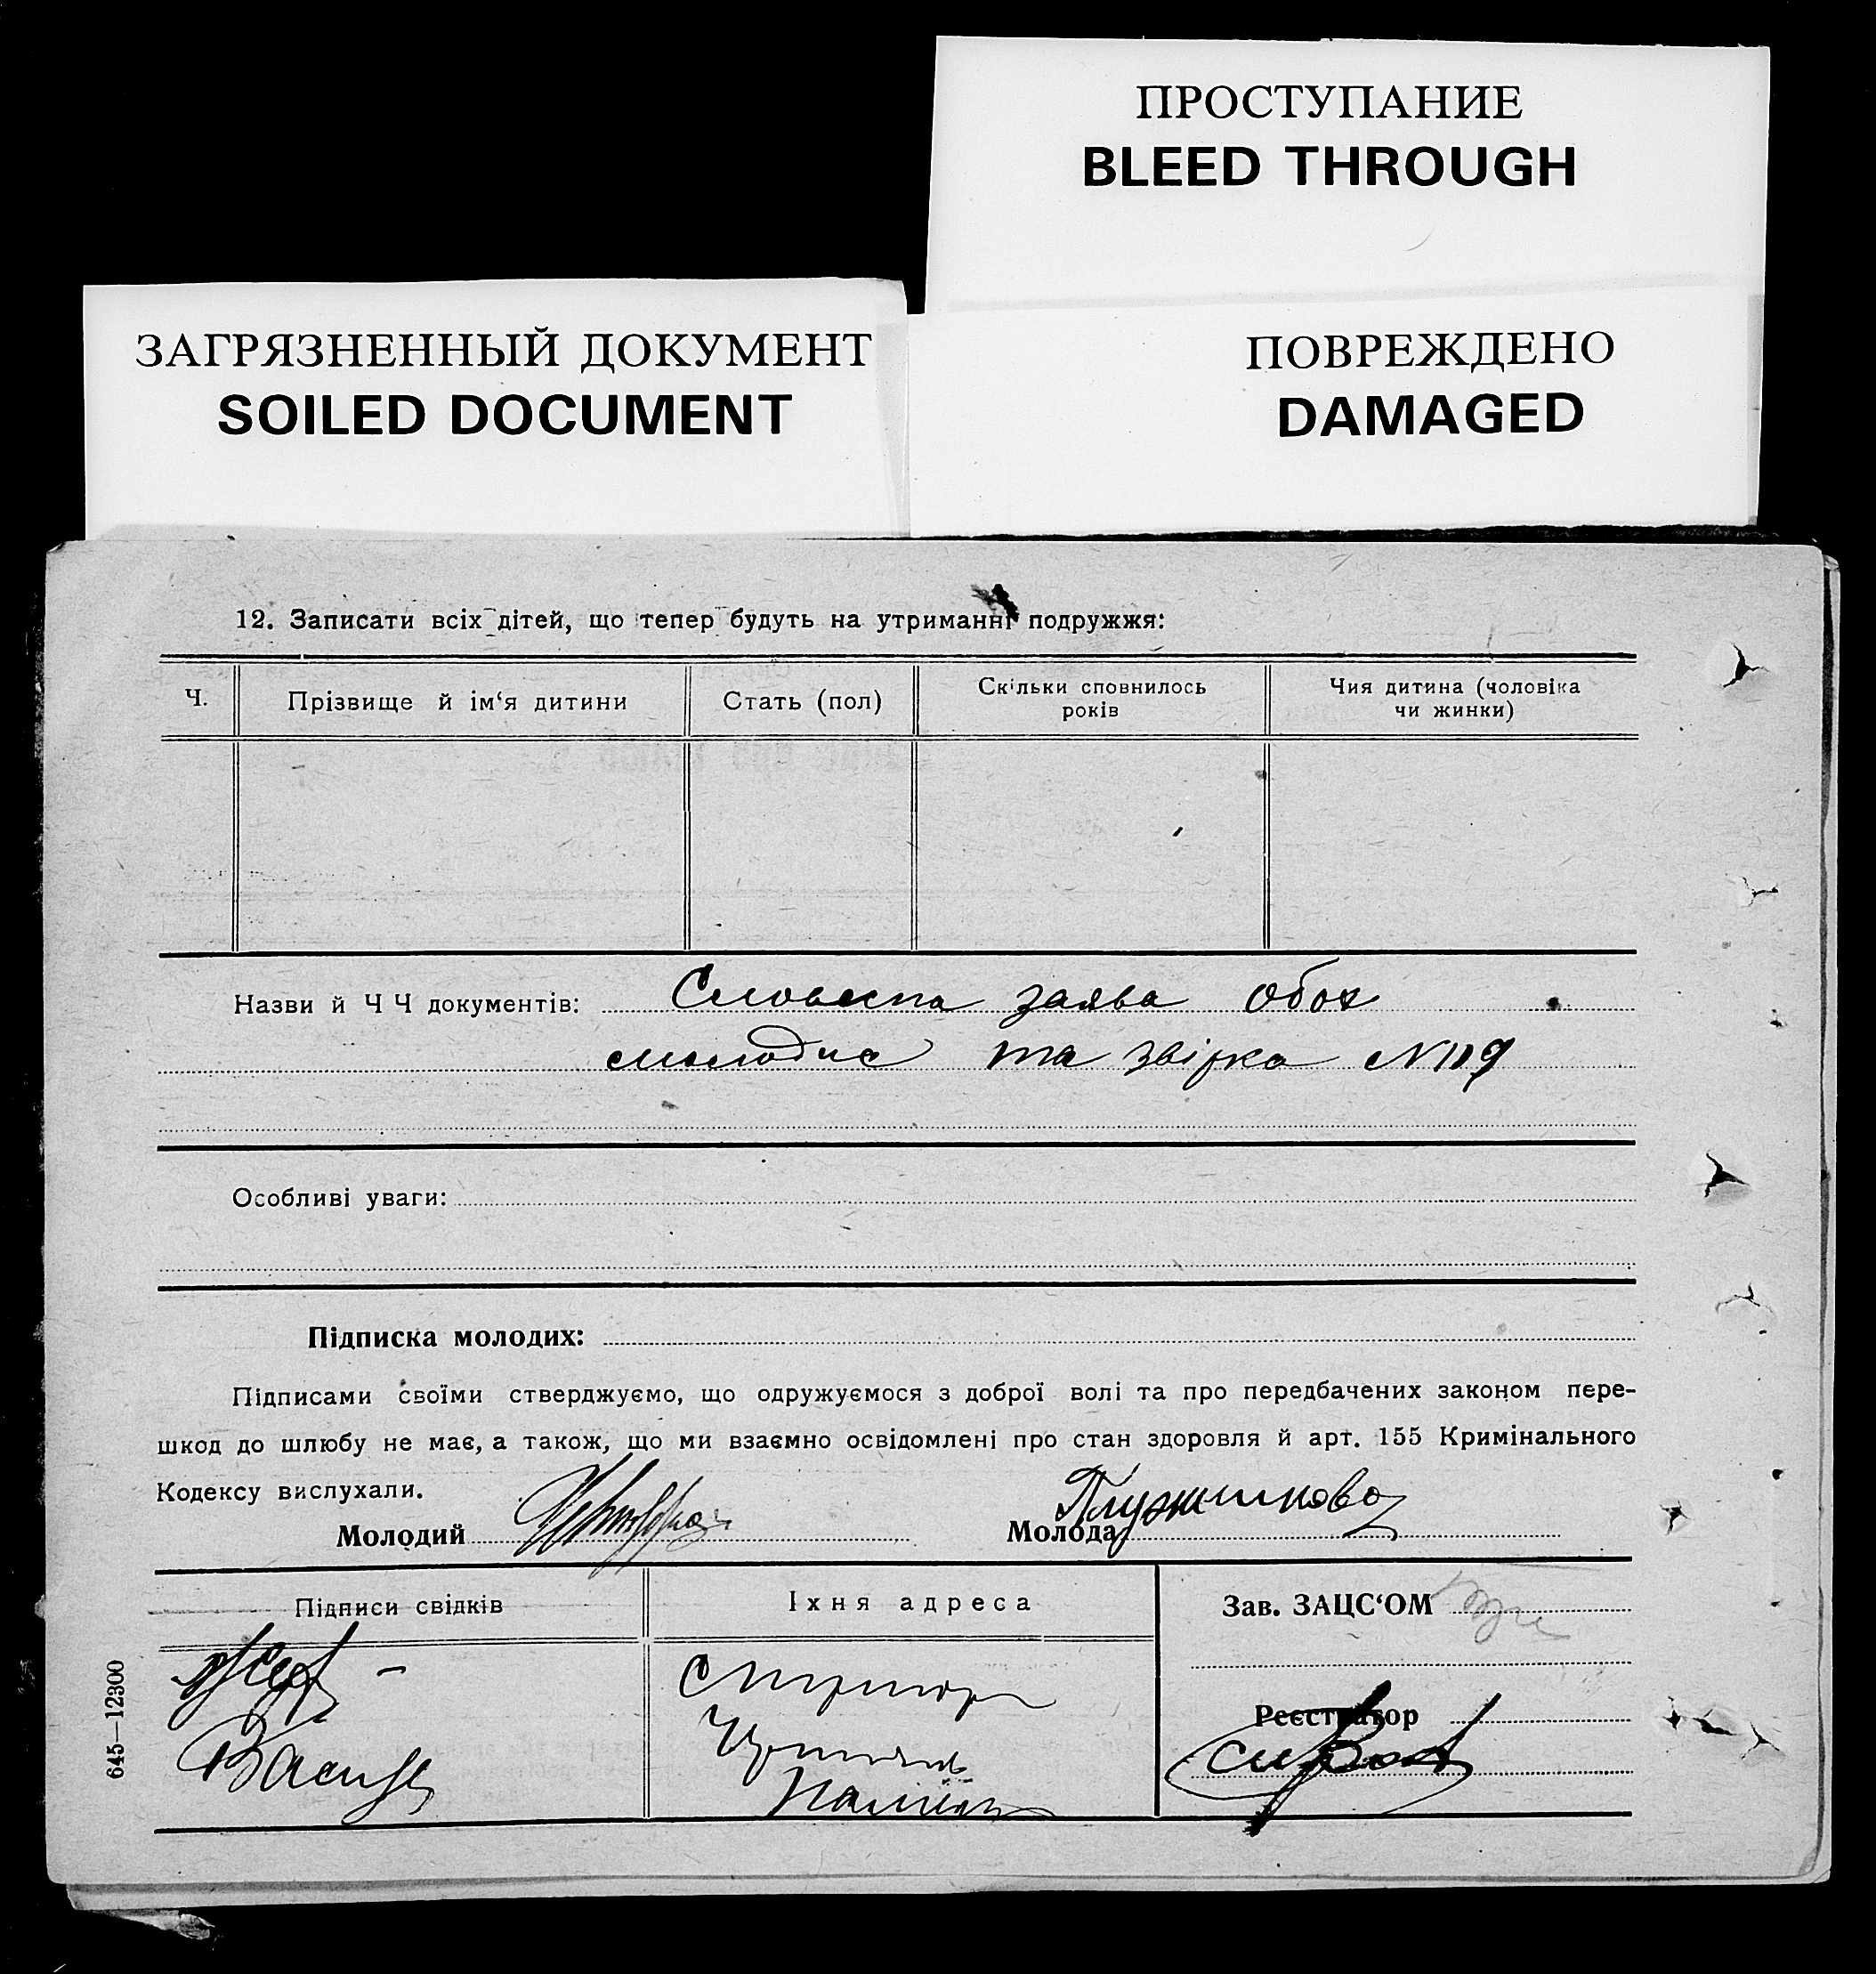 ПРОСТУПАНИЕ
BLEED THROUGH
ЗАГРЯЗНЕННЫЙ ДОКУМЕНТ
SOILED DOCUMENT
ПОВРЕЖДЕНО
DAMAGED
12. Записати всіх дітей, що тепер будуть на утриманні подружжя:
Ч.
Прізвище й ім‘я дитини
Стать (пол)
Скільки сповнилось
років
Чия дитина (чоловіка
чи жинки)
Назви й Ч Ч документів: Словесна заява обох
молодих та звірка N 119
Особливі уваги:
Підписка молодих:
Підписами своїми стверджуємо, що одружуємося з доброї волі та про передбачених законом пере-
шкод до шлюбу не має, а також, що ми взаємно освідомлені про стан здоровля й арт. 155 Кримінального
Кодексу вислухали.
Молодий
Молода Плужникова
Підписи свідків
Їхня адреса
Зав. ЗАЦС‘ОМ
Реєстратор
645—12300